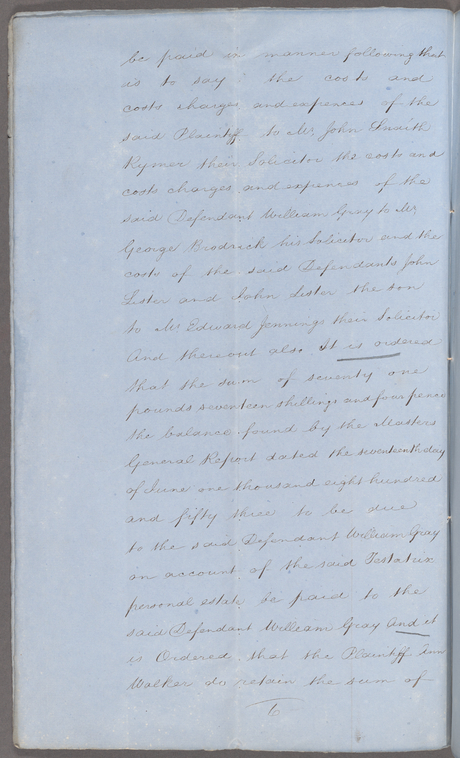 be paid in manner following that
is to say the costs and
costs charges and expences of the
said Plaintiff to Mr John Snaith
Rymer their Solicitor the costs and
costs charges and expences of the
said Defendant William Gray to Mr
George Brodrick his Solicitor and the
costs of the said Defendants John
Lister and John Lister the son
to Mr Edward Jennings their Solicitor
And thereout also It is ordered
that the sum of seventy one
pounds seventeen shillings and four pence
the balance found by the Masters
General Report dated the seventeenth day
of June one thousand eight hundred
and fifty three to be due
to the said Defendant William Gray
on account of the said Testatrix
personal estate be paid to the
said Defendant William Gray And it
is Ordered that the Plaintiff
Walker do retain the sum of
6